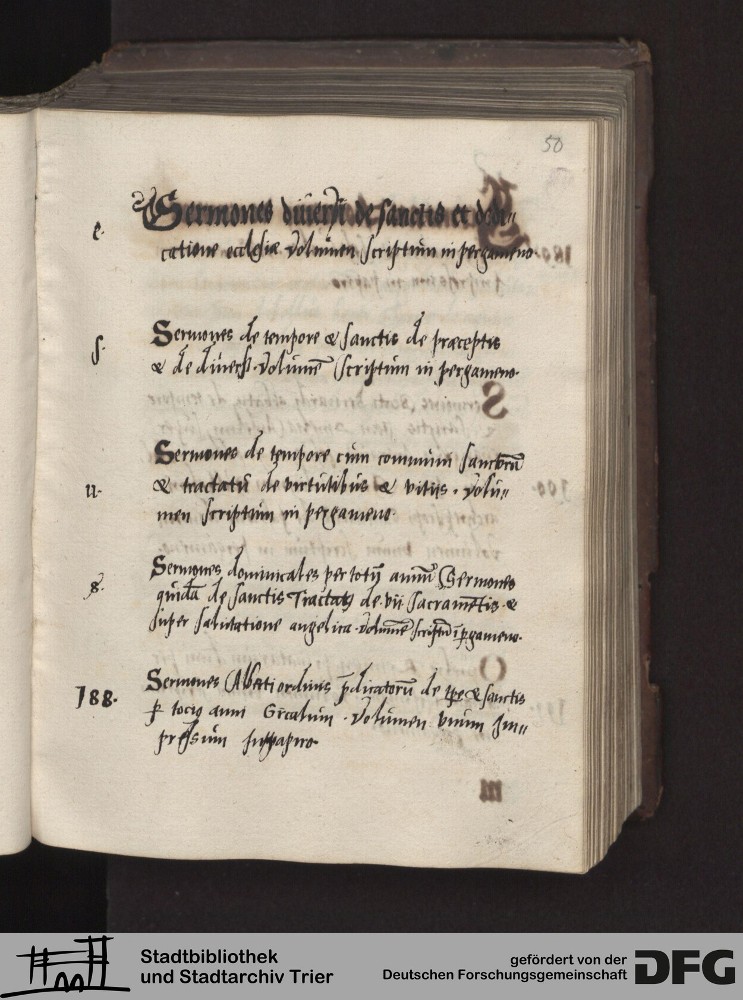 50
e.
Sermones diuersi de sanctis et dedi„
catione ecclesiæ Volumen scriptum in pergameno
f.
Sermones de tempore & sanctis de præceptis
& de diuersis. Volumē scriptum in pergameno.
u.
Sermones de tempore cum communi sanctorū
& tractatu de virtutibus & vitijs. Volu„
men scriptum in pergameno.
g.
Sermones dominicales per totū annū Sermones
quidā de sanctis Tractatus de vii sacramētis. &
super salutatione angelica. Volumē scriptū ī pergameno.
188.
Sermones Alberti ordinis p̄dicatorū de tpe & sanctis
p totius anni circulum. Volumen vnum Im„
pressum in papiro.
Stadtbibliothek
und Stadtarchiv Trier
gefördert von der
Deutschen Forschungsgemeinschaft
DFG